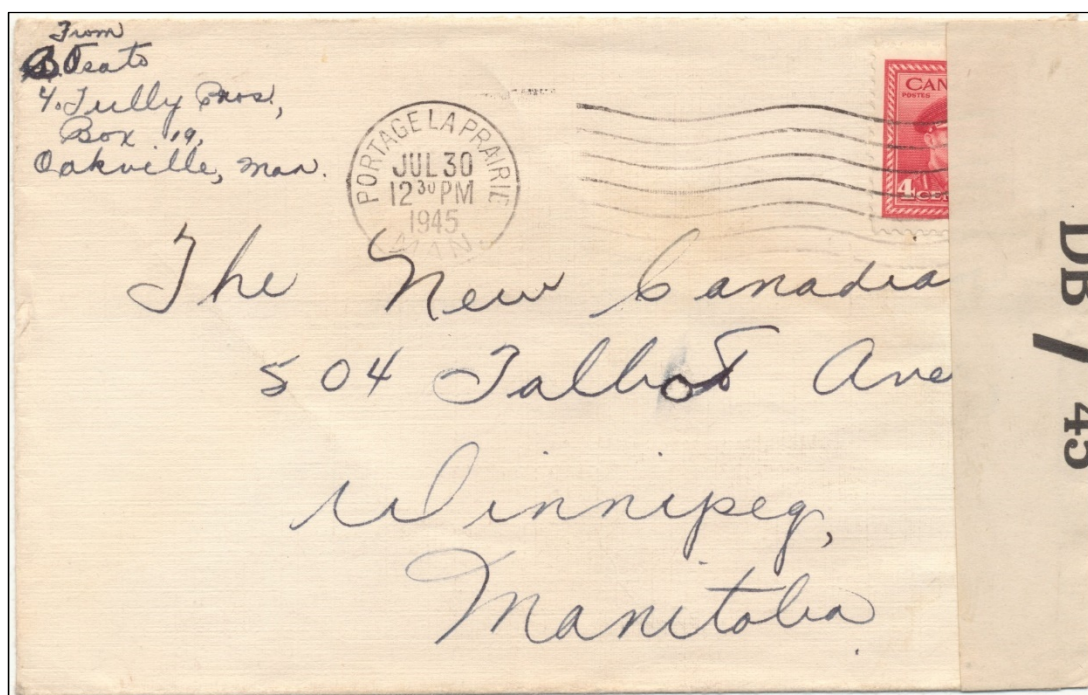 From
Teato
Tully Bros.,
Box 19,
Oakville, Man.
PORTAGE LA PRAIRIE
JUL 30
12 30 PM
1945
MAN.
CAN
POSTES
4 CE
The New Canadia
504 Talbot Ave
Winnipeg,
Manitoba
DB / 45